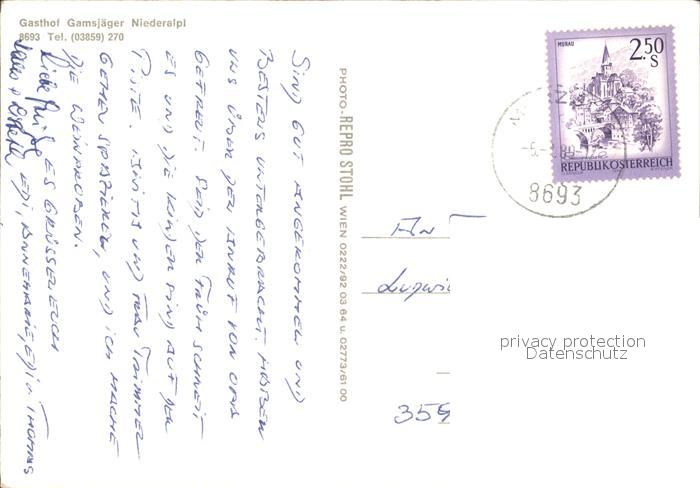 Gasthof Gamsjäger Niederalpl
8693 Tel. (03859) 270
SIND GUT ANGEKOMMEN UND
BESTENS UNTERGEBRACHT. HABEN
UNS ÜBER DEN ANRUF VON OPA
GEFREUT. SEIT DER FRÜH SCHNEIT
ES UND DIE KINDER SIND AUF DER
PISTE. UND FRAU TRIMMEL
GEHEN SPAZIEREN, UND ICH MACHE
DIE WEINPROBEN.
Liebe Grüße ES GRÜSSEN EUCH
EDI, ANNEMARIE, EDI u. THOMAS
PHOTO-REPRO STOHL WIEN 0222/92 03 64 u. 02773/61 00
MURAU
2.50
S
REPUBLIK ÖSTERREICH
8693
An
Ludwi
359
privacy protection
Datenschutz